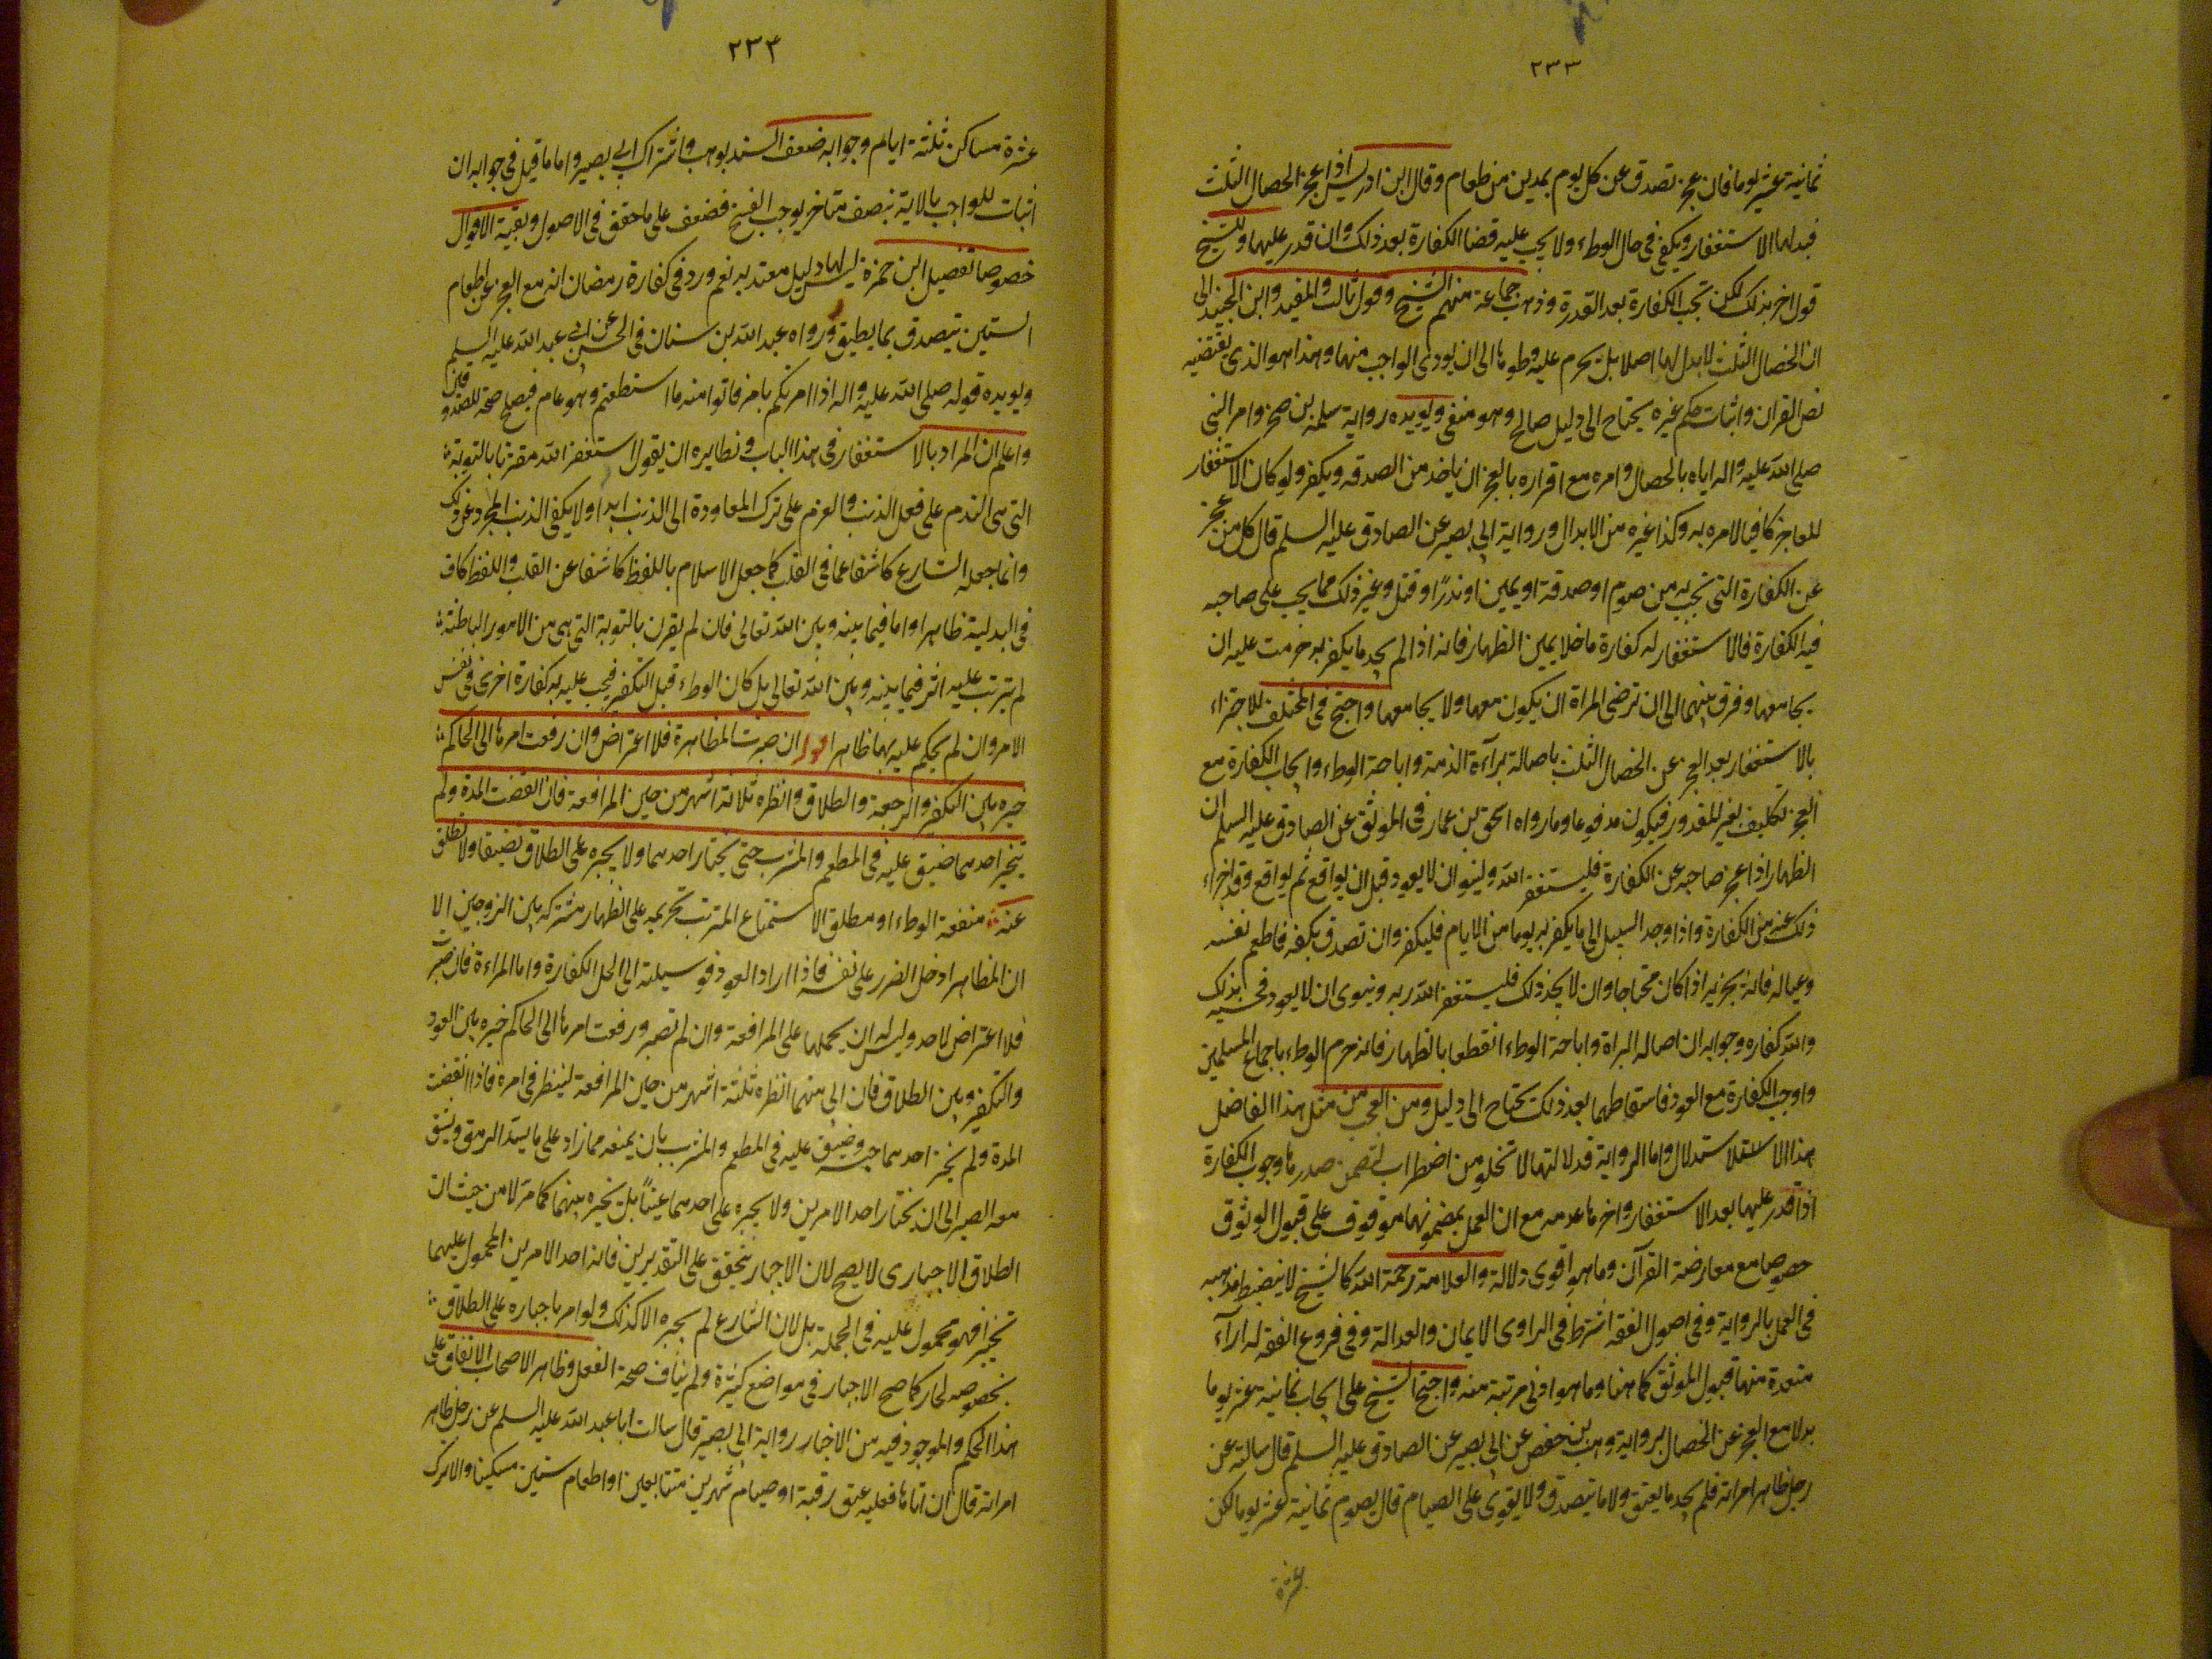 ٢٣٣
ثمانية عشر يوما فان عجز تصدق عن كل يوم بمدين من طعام وقال ابن ادريس اذا عجز الخصال الثلث
فبدلها الاستغفار ويكفي في حال الوطء ولا يجب عليه قضا الكفارة بعد ذلك وان قدر عليها وللشيخ
قول اخر بذلك لكن تجب الكفارة بعد القدرة وذهب جماعة منهم الشيخ وقول ثالث والمفيد وابن الجنيد الى
ان الخصال الثلث لا بدل لها اصلا بل يحرم عليه وطوها الى ان يودى الواجب منها وهذا هو الذى يقتضيه
نص القران واثبات حكم غيره يحتاج الى دليل صالح وهو منفى ويويده رواية سلمه بن صخر وامر النبى
صلى الله عليه واله اياه بالخصال وامره مع اقراره بالعجز ان ياخذ من الصدقه ويكفر ولو كان الاستغفار
للعاجز كافيا لامره به وكذا غيره من الابدال ورواية ابى بصير عن الصادق عليه السلم قال كل من عجز
عن الكفارة التى تجب به من صوم او صدقة او يمين او نذر او قتل وغير ذلك مما يجب على صاحبه
فيه الكفارة فالاستغفار له كفارة ما خلا يمين الظهار فانه اذا لم يجد ما يكفر به حرمت عليه ان
يجامعها وفرق بينهما الى ان ترضى المراة ان يكون معها ولا يجامعها واحتج فى المختلف للاجتزاء
بالاستغفار بعد العجز عن الخصال الثلث باصالة برآءة الذمة واباحة الوطء وايجاب الكفارة مع
العجز تكليف بغير المقدور فيكون مدفوعا وما رواه اسحق بن عمار فى الموثق عن الصادق عليه السلم ان
الظهار اذا عجز صاحبه عن الكفارة فليستغفر الله ولينو ان لا يعود قبل ان يواقع ثم ليواقع وقد اجزاء
ذلك عنه من الكفارة واذا وجد السبيل الى ما يكفر به يوما من الايام فليكفر وان تصدق بكفه فاطعم نفسه
وعياله فانه يجزيه اذا كان محتاجا وان لا يجد ذلك فليستغفر الله ربه وينوى ان لا يعود فحسبه بذلك
والله كفاره وجوابه ان اصاله البراة واباحة الوطء انقطعا بالظهار فانه حرم الوطء باجماع المسلمين
واوجب الكفارة مع العود فاسقاطهما بعد ذلك يحتاج الى دليل ومن العجب من مثل هذا الفاضل
هذا الاستدلال واما الرواية فدلالتها لا تخلو من اضطراب لتضمن صدرها وجوب الكفارة
اذا قدر عليها بعد الاستغفار واخرها عدمه مع ان العمل بمضمونها موقوف على قبول الوثوق
خصوصا مع معارضة القرآن وما هو اقوى دلالة والعلامة رحمة الله كالشيخ لا ينضبط مذهبه
فى العمل بالرواية وفى اصول الفقه اشترط فى الراوى الايمان والعدالة وفى فروع الفقه له ارآء
متعددة منها قبول الموثق كما هنا وما هو ادنى مرتبة منه واحتج الشيخ على ايجاب ثمانية عشر يوما
بدلا مع العجز عن الخصال برواية وهب بن حفص عن ابى بصير عن الصادق عليه السلم قال سالته عن
رجل ظاهر امراته فلم يجد ما يعتق ولا ما يتصدق ولا يقوى على الصيام قال يصوم ثمانية عشر يوما لكن
عشرة
٢٣٤
عشرة مساكين ثلثة ايام وجوابه ضعف السند بوهب واشتراك ابى بصير واما ما قيل فى جوابه ان
اثبات للواجب بالاية بنصف متاخر يوجب الفسخ فضعف على ما حقق فى الاصول وبقية الاقوال
خصوصا تفصيل ابن حمزة ليس لها دليل معتد به نعم ورد فى كفارة رمضان انه مع العجز عن اطعام
الستين يتصدق بما يطيق ورواه عبد الله بن سنان فى الحسن عن ابى عبد الله عليه السلم
ويويده قوله صلى الله عليه واله اذا امرتكم بامر فاتوا منه ما استطعتم وهو عام فيصلح
واعلم ان المراد بالاستغفار فى هذا الباب ونظايره ان يقول استغفر الله مقترنا بالتوبة
التى هى الندم على فعل الذنب والعزم على ترك المعاودة الى الذنب ابدا ولا يكفى الذنب المجرد عن ذلك
وانما جعله الشارع كاشفا عما فى القلب كما جعل الاسلام باللفظ كاشفا عن القلب واللفظ كاف
فى البدلية ظاهرا واما فيما بينه وبين الله تعالى فان لم يقرن بالتوبة التى هى من الامور الباطنة
لم يترتب عليه اثر فيما بينه وبين الله تعالى بل كان الوطء قبل التكفير فيجب عليه به كفارة اخرى فى نفس
الامر وان لم يحكم عليه بها ظاهرا قوله ان صبرت المظاهرة فلا اعتراض وان رفعت امرها الى الحاكم
خيره بين التكفير والرجعة والطلاق وانظره ثلاثة اشهر من حين المرافعة فان انقضت المدة ولم
يختر احدهما ضيق عليه فى المطعم والمشرب حتى يختار احدهما ولا يجبره على الطلاق تضيقا ولا يطلق
عنه منفعة الوطء او مطلق الاستمتاع المترتب تحريمه على الظهار مشتركه بين الزوجين الا
ان المظاهر ادخل الضرر على نفسه فاذا اراد العود فوسيلته الى الحل الكفارة واما المراءة فان صبرت
فلا اعتراض لاحد وليس له ان يحملها على المرافعة وان لم تصبر ورفعت امرها الى الحاكم خيره بين العود
والتكفير وبين الطلاق فان ابى منهما انظره ثلثة اشهر من حين المرافعة لينظر فى امره فاذا انقضت
المدة ولم يختر احدهما حبسه وضيق عليه فى المطعم والمشرب بان يمنعه مما زاد على ما يسد الرمق ويشق
معه الصبر الى ان يختار احد الامرين ولا يجبره على احدهما عينا بل يخيره بينهما كما مر لا من حيث ان
الطلاق الاجبارى لا يصح لان الاجبار يتحقق على التقديرين فانه احد الامرين المحمول عليهما
تخييرا فهو محمول عليه فى الجملة بل لان الشارع لم يجبره الا كذلك ولو امر باجباره على الطلاق
بخصوصه لجاز كما صح الاجبار فى مواضع كثيرة ولم يناف صحة الفعل وظاهر الاصحاب الاتفاق على
هذا الحكم والموجود فيه من الاخبار رواية ابى بصير قال سالت ابا عبد الله عليه السلم عن رجل ظاهر
امراته قال ان اتاها فعليه عتق رقبة او صيام شهرين متتابعين او اطعام ستين مسكينا والا ترك